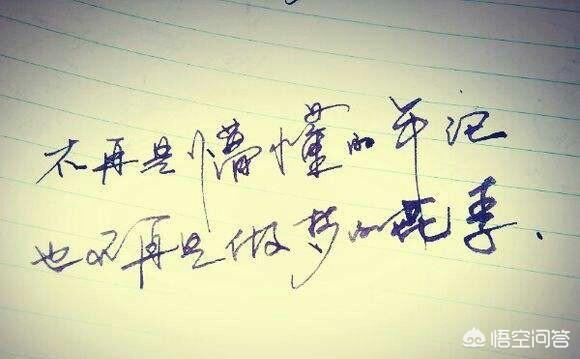 不再是懵懂的年记
也不再是做梦的花季.
悟空问答